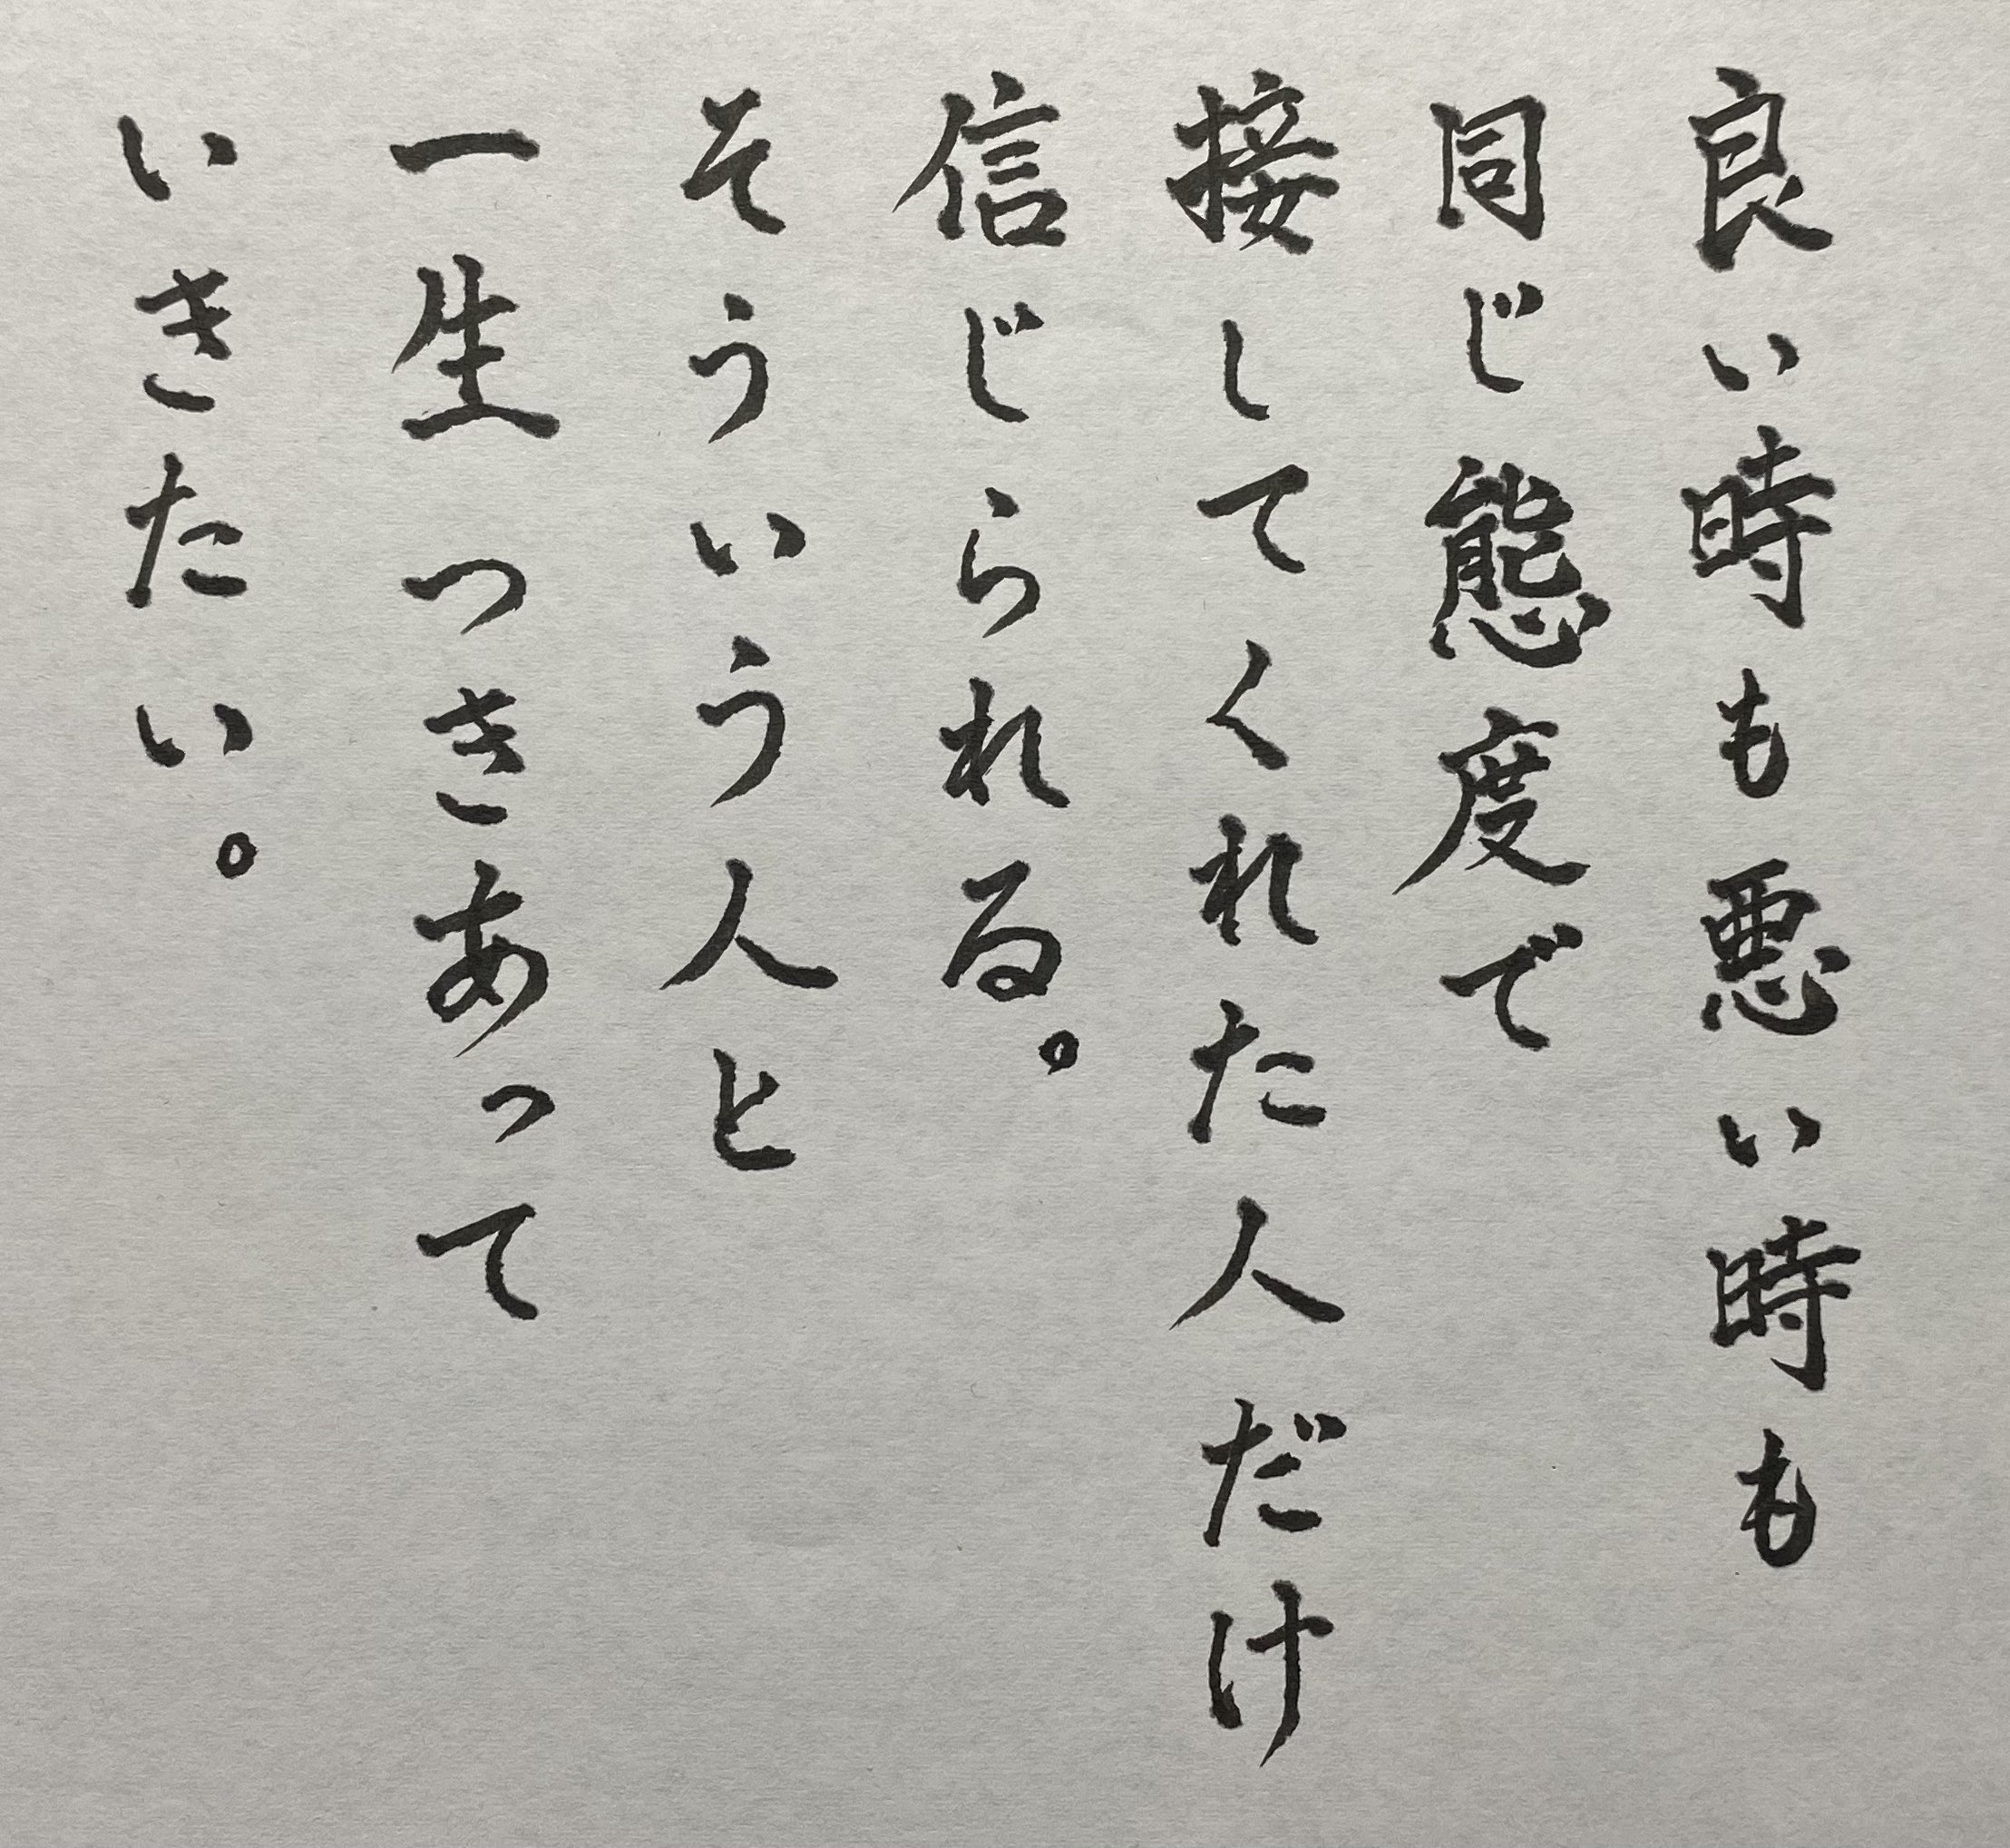 良い時も悪い時も
同じ態度で
接してくれた人だけ
信じられる。
そういう人と
一生つきあって
いきたい。